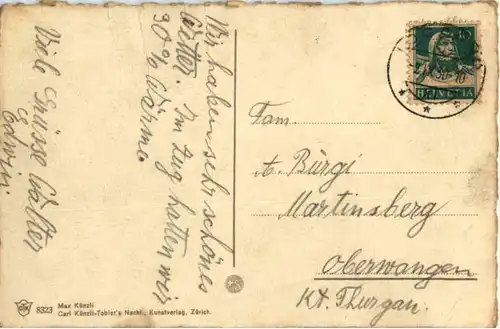 Wir haben sehr schönes
Wetter. Im Zug hatten wir
30% Wärme.
Viele Grüsse Walter
Edwin.
Fam.
A. Bürgi
Martinsberg
Oberwangen
Kt. Thurgau.
10
HELVETIA
8323
Max Künzli
Carl Künzli-Tobler's Nachf., Kunstverlag, Zürich.